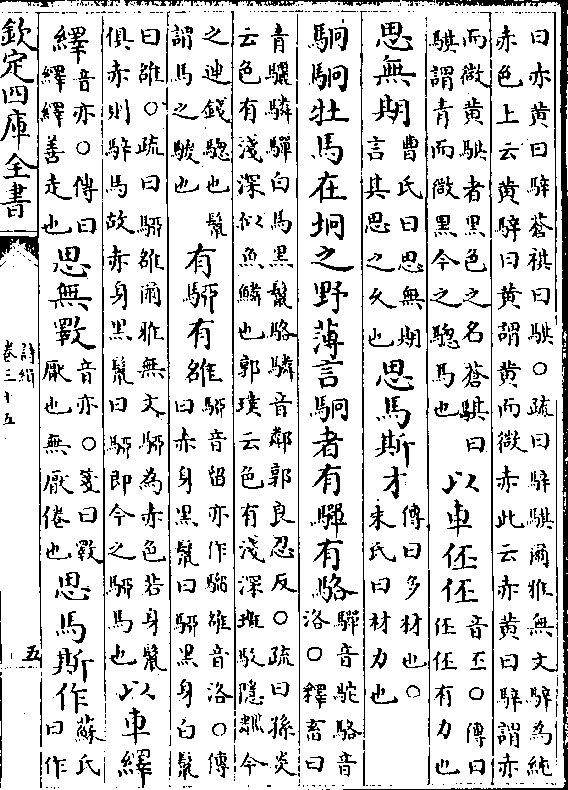 曰亦黄曰騂蒼祺曰騏○疏曰騂騏爾雅無文騂為純
赤色上云黄騂曰黄謂黄而微赤此云亦黄曰騂謂亦
而微黄騏者黑色之名蒼騏曰
騏謂青而微黑今之驄馬也
以車伾伾
音丕○傳曰
伾伾有力也
思無期
曹氏曰思無期
言其思之久也
思馬斯才
傳曰多材也○
朱氏曰材力也
駉駉牡馬在坰之野薄言駉者有驒有駱
驒音駝駱音
洛○釋畜曰
青驪驎驒白馬黑鬛駱驎音鄰郭良忍反○疏曰孫炎
云色有淺深似魚鱗也郭璞云色有淺深班駁隱粼今
之連錢驄也鬛
謂馬之騣也
有駵有雒
駵音留亦作騮雒音洛○傳
曰赤身黑鬛曰駵黑身白鬛
曰雒○疏曰駵雒爾雅無文駵為赤色若身鬛
俱赤則騂馬故赤身黑鬛曰駵即今之駵馬也
以車繹
繹
音亦○傳曰
繹繹善走也
思無斁
音亦○箋曰斁
厭也無厭倦也
思馬斯作
蘇氏
曰作
欽定四庫全書
詩緝
卷三十五
五